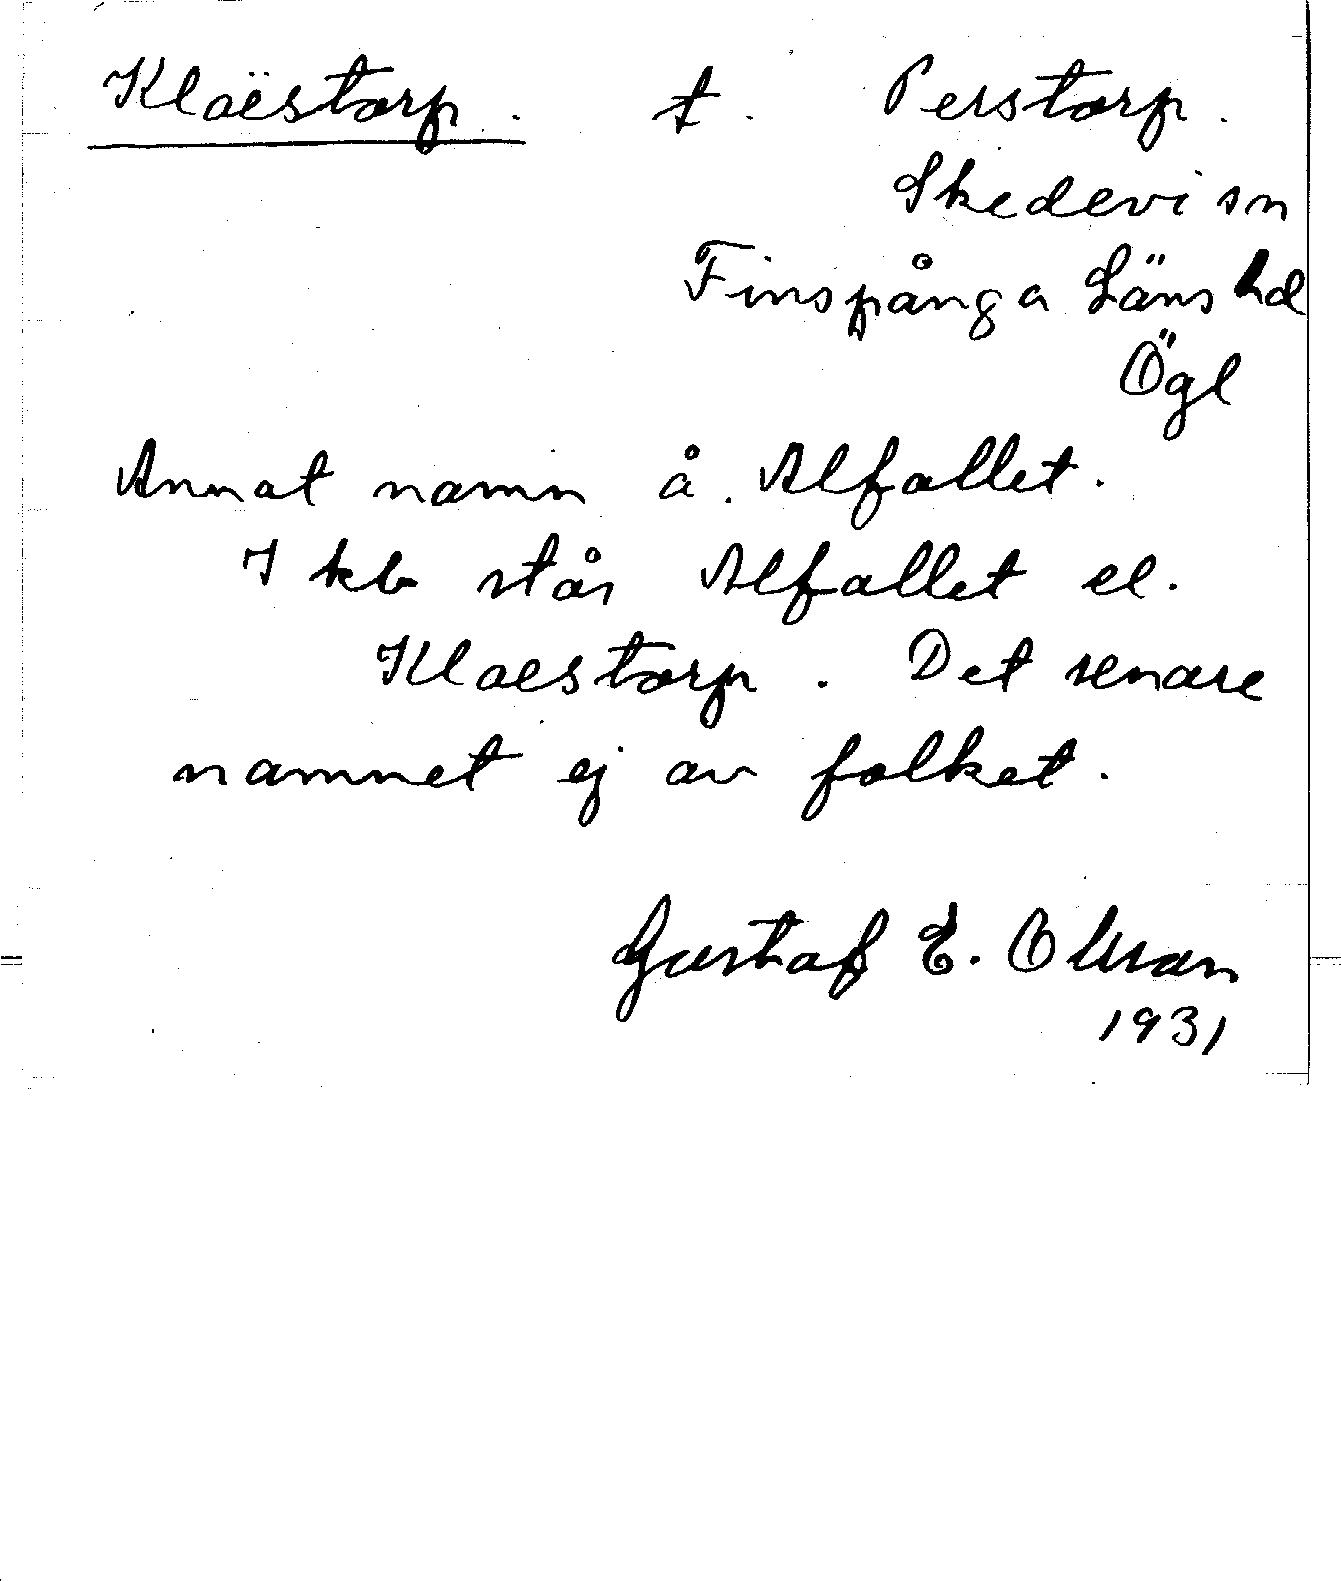 Klaëstorp. t. Perstorp.
Skedevi sn
Finspånga Läns hd
Ögl
Annat namn å. Alfallet.
I kb står Alfallet el.
Klaestorp. Det senare
namnet ej av folket.
Gustaf E. Olsson
1931